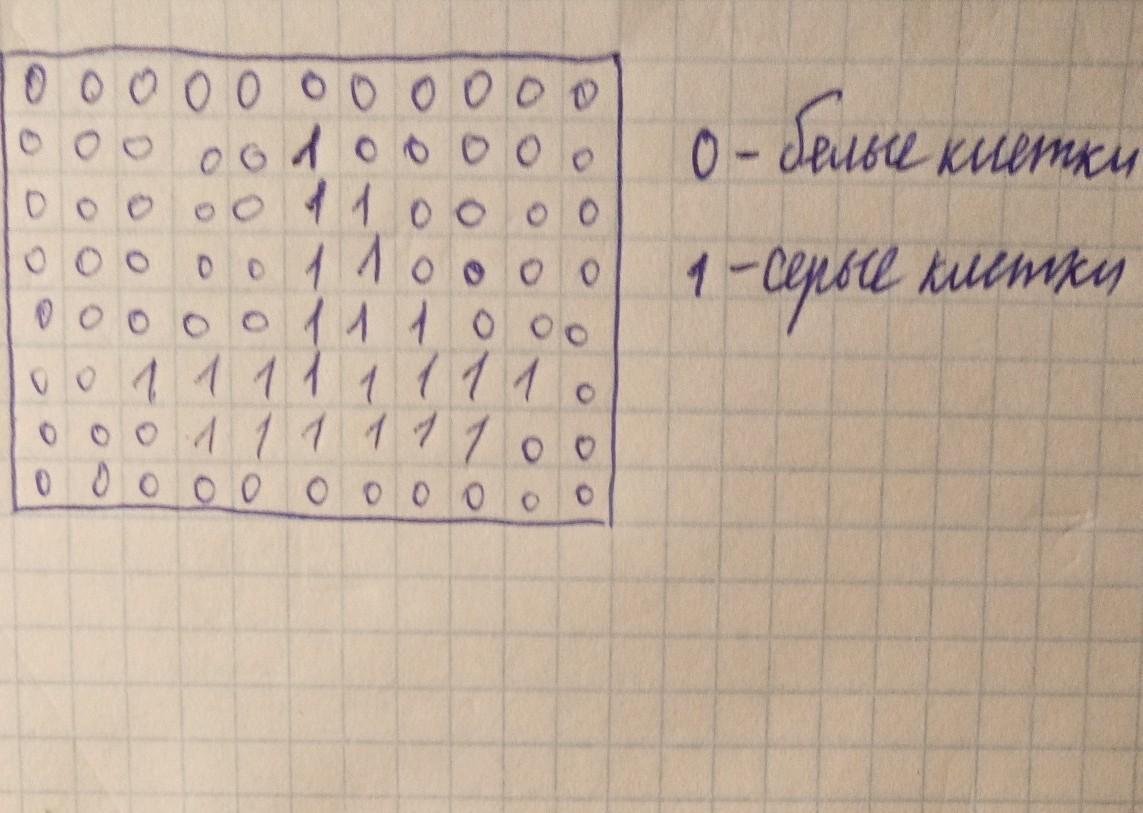 0 0 0 0 0 0 0 0 0 0 0
0 0 0 0 0 1 0 0 0 0 0
0 0 0 0 0 1 1 0 0 0 0
0 0 0 0 0 1 1 0 0 0 0
0 0 0 0 0 1 1 1 0 0 0
0 0 1 1 1 1 1 1 1 1 0
0 0 0 1 1 1 1 1 1 0 0
0 0 0 0 0 0 0 0 0 0 0
0 - белые клетки
1 - серые клетки